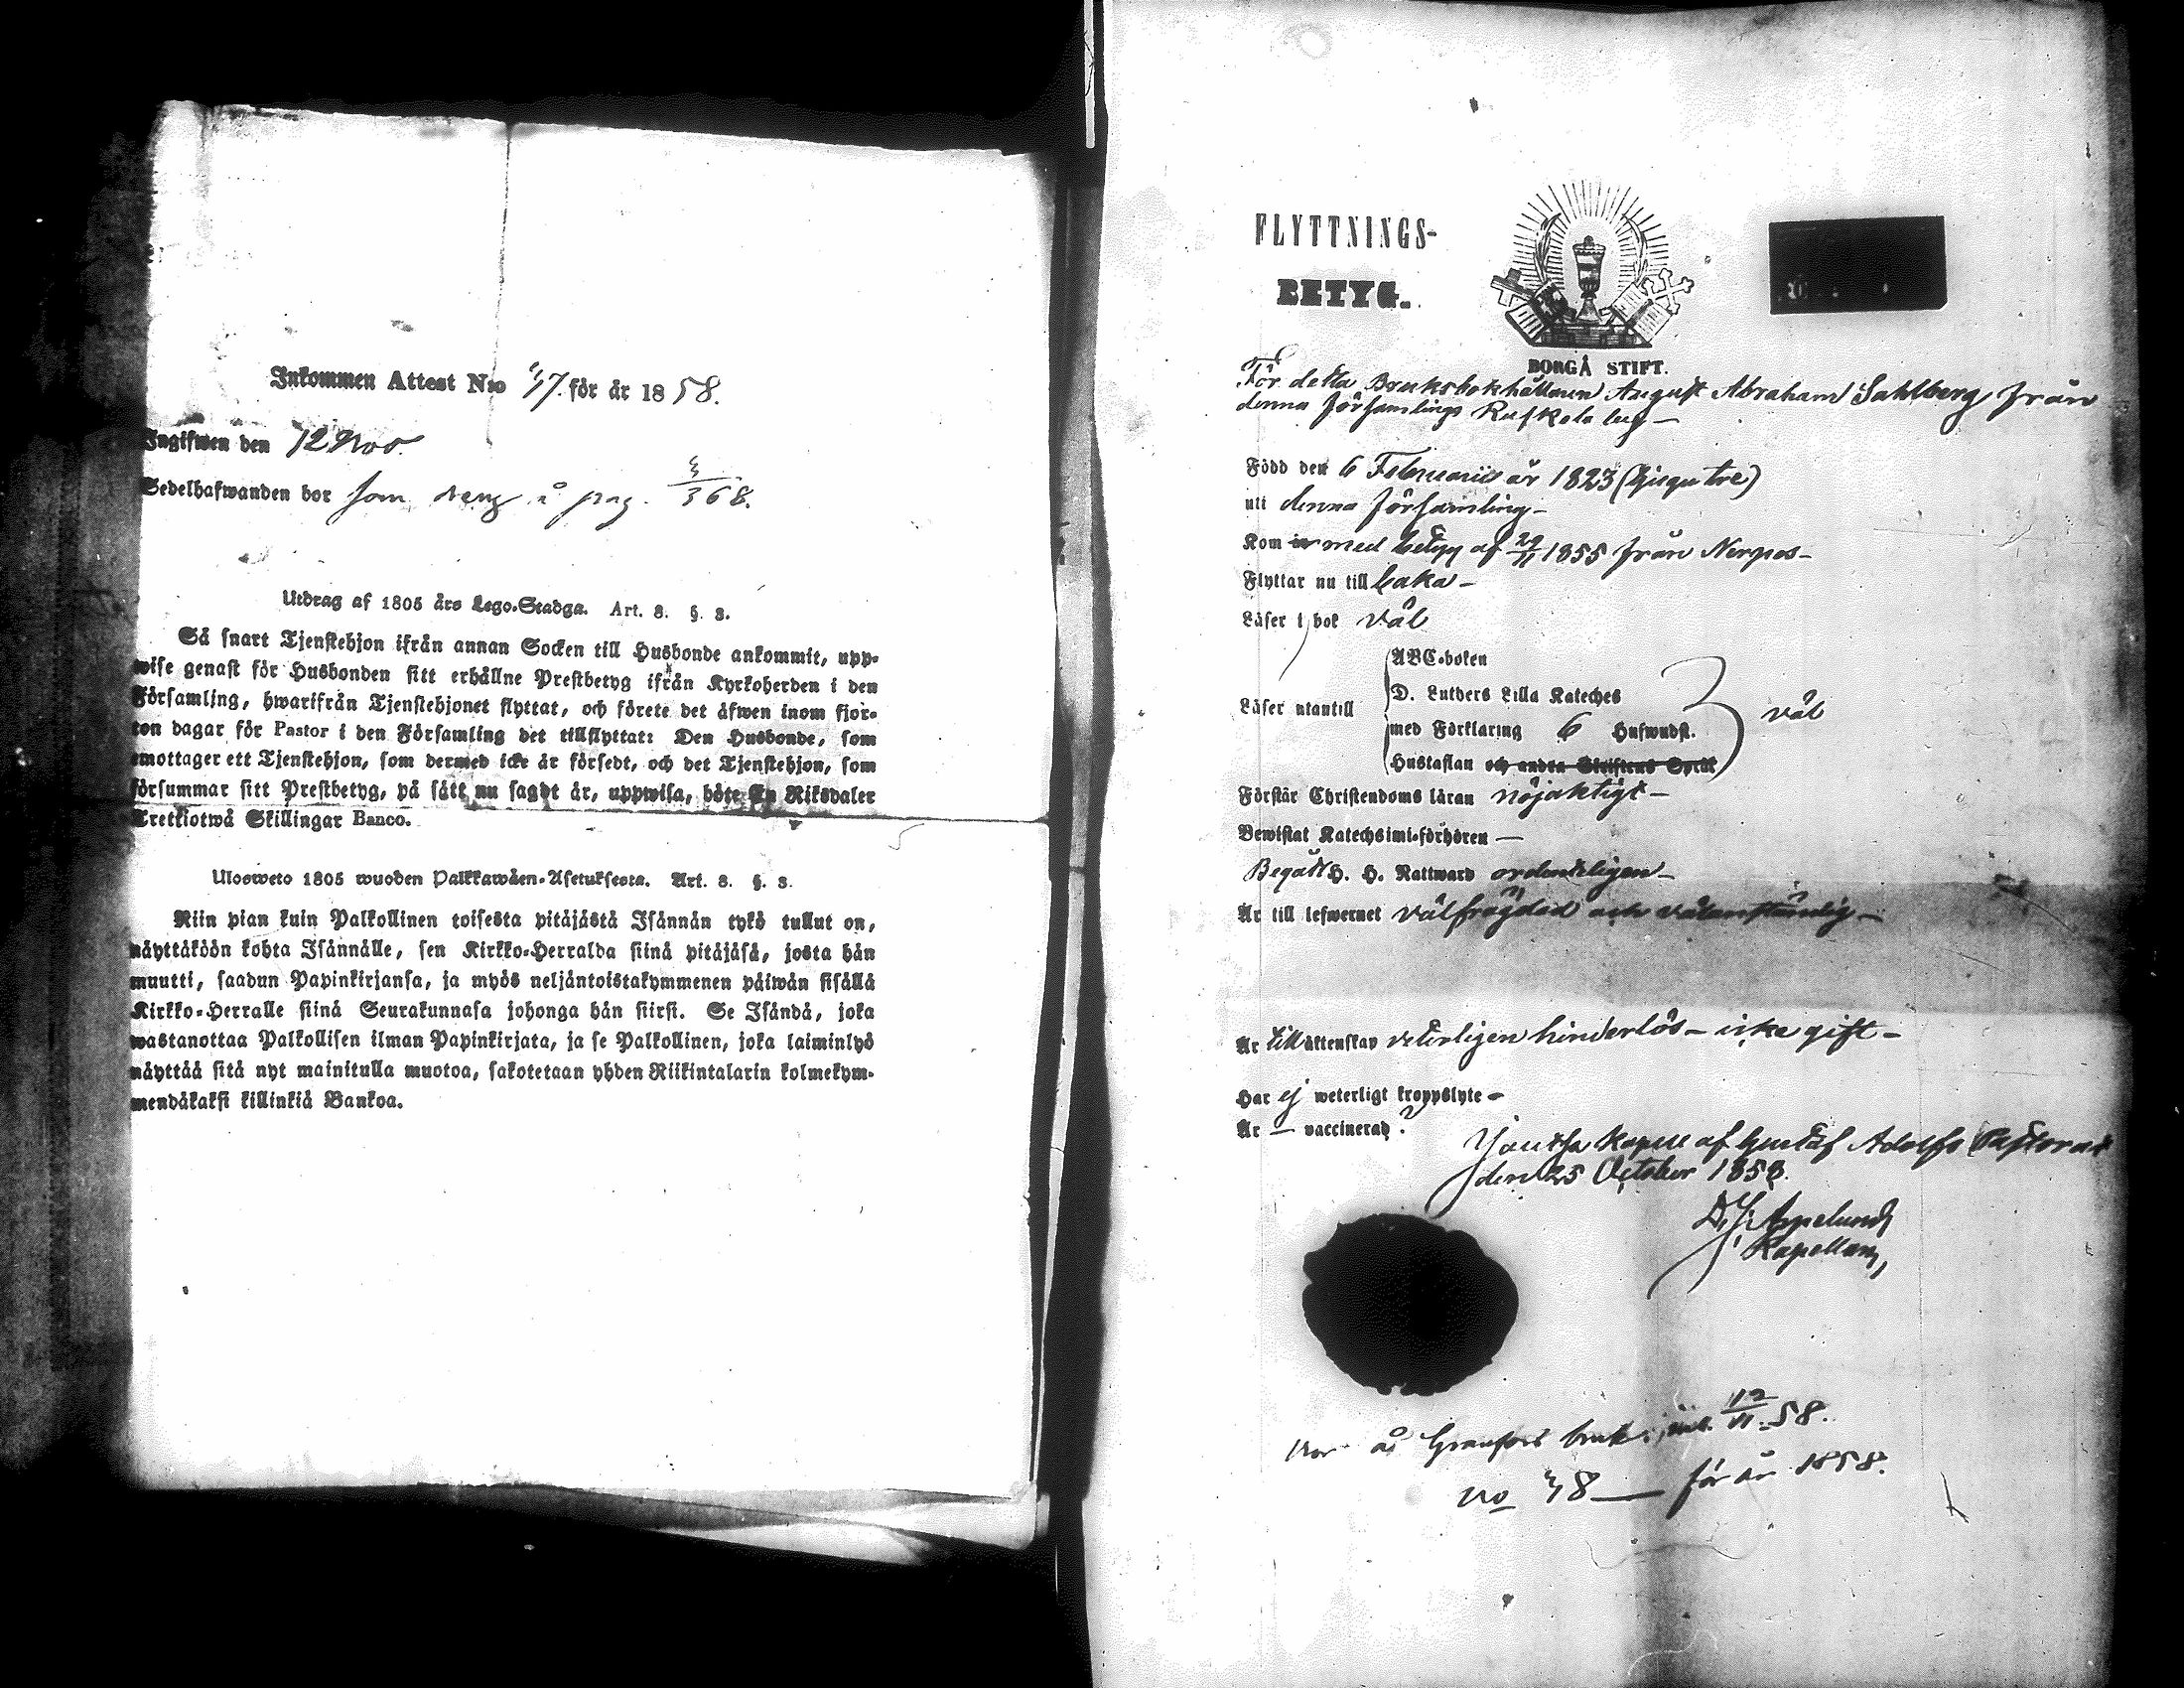 Inkommen Attest N:o 47. för år 1858.
Ingifwen den 12 Nov.
Sedelhafwanden bor som dreng å pag. 368.
Utdrag af 1805 års Lego-Stadga. Art. 8. §. 3.
Så snart Tjenstehjon ifrån annan Socken till Husbonde ankommit, upp-
wise genast för Husbonden sitt erhållne Prestbetyg ifrån Kyrkoherden i den
Församling, hwarifrån Tjenstehjonet flyttat, och förete det äfwen inom fjor-
ton dagar för Pastor i den Församling det tillflyttat: Den Husbonde, som
emottager ett Tjenstehjon, som dermed icke är försedt, och det Tjenstehjon, som
försummar sitt Prestbetyg, på sätt nu sagdt är, uppwisa, böte En Riksdaler
Tretiotwå Skillingar Banco.
Ulosweto 1805 wuoden Palkkawäen-Asetuksesta. Art. 8. §. 3.
Niin pian kuin Palkollinen toisesta pitäjästä Isännän tykö tullut on,
näyttäköön kohta Isännälle, sen Kirkko-Herralda siinä pitäjäsä, josta hän
muutti, saadun Papinkirjansa, ja myös neljäntoistakymmenen päiwän sisällä
Kirkko-Herralle siinä Seurakunnasa johonga hän siirsi. Se Isändä, joka
wastanottaa Palkollisen ilman Papinkirjata, ja se Palkollinen, joka laiminlyö
näyttää sitä nyt mainitulla muotoa, sakotetaan yhden Riikintalarin kolmekym-
mendäkaksi killinkiä Bankoa.
FLYTTNINGS-
BETYG.
BORGÅ STIFT.
För detta Bruksbokhållaren August Abraham Sahlberg från
denna församlings by
Född den 6 Februarii år 1823 (tjugutre)
uti denna församling
Kom in med betyg af 29/11 1855 från Nerpes
Flyttar nu till baka
Läser i bok väl
Läser utantill
ABC-boken
D. Luthers Lilla Kateches
med Förklaring 6 Hufwudst. väl
Hustaflan och andra Skriftens Språk
Förstår Christendoms läran nöjaktigt
Bewistat Katechsimi-förhören —
Begått H. H. Nattward ordenteligen
Är till lefwernet välfrägdad och välanständig
Är till äktenskap veterligen hinderlös – icke gift
Har ej weterligt kroppslyte
Är — vaccinerad?
Kapell af Gustaf Adolfs Pastorat
den 25 October 1858.
Appelund
Kapellan
bruk. 12/11 58.
No 48 — för år 1858.